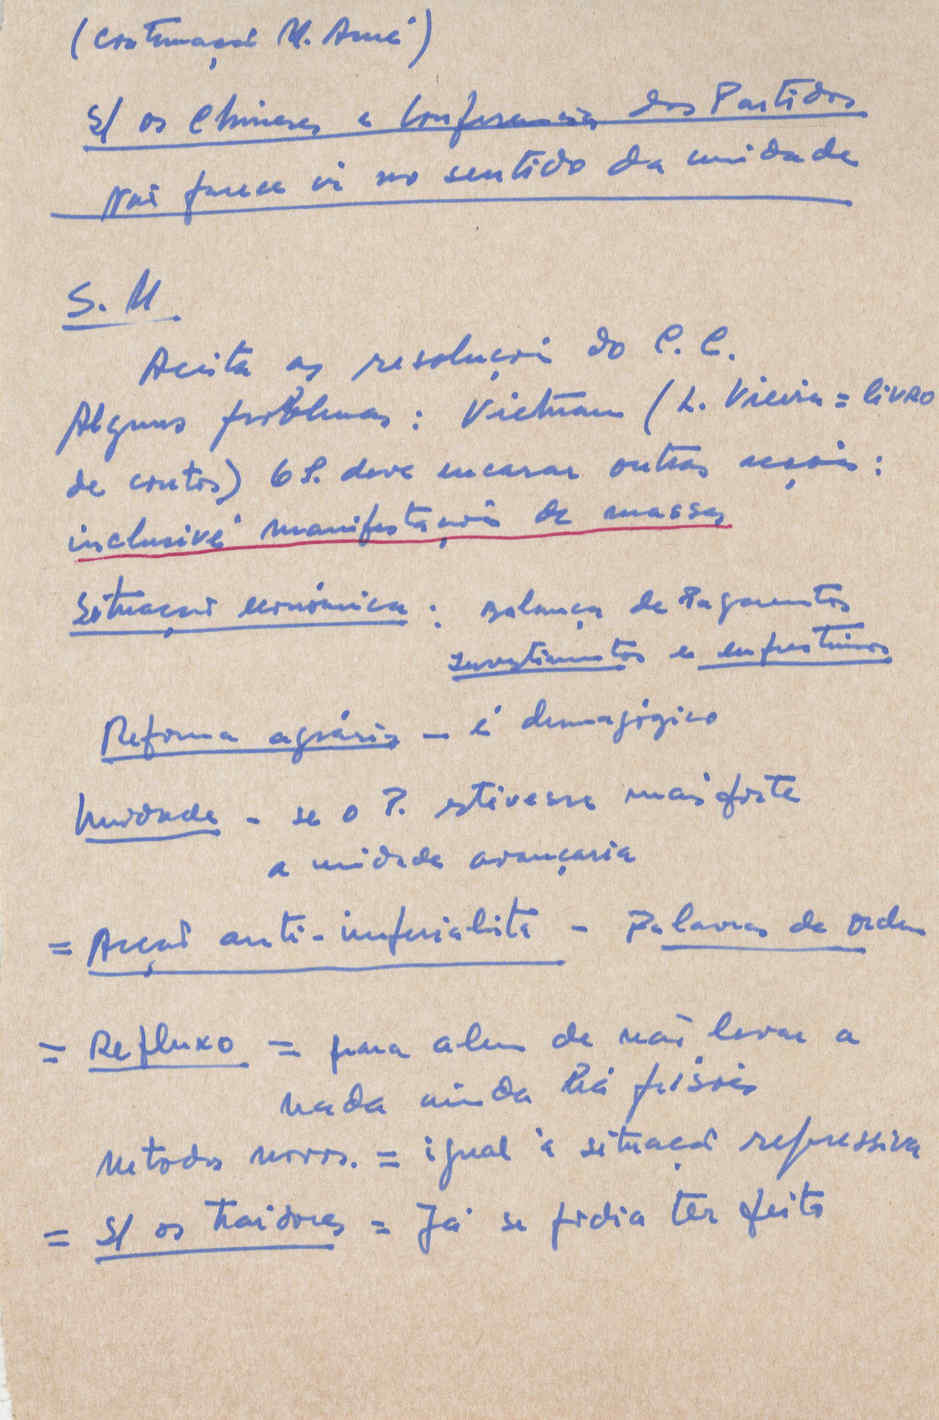 (continuação M. Amé)
S/ os Chineses e Conferencia dos Partidos
Não parece ir no sentido da unidade
S. M.
Aceita as resoluções do C. C.
Alguns problemas: Vietnam (L. Vieira = livro
de contos) o P. deve encarar outras acções:
inclusivé manifestações de massas
Situação económica: Balança de Pagamentos
Investimentos e emprestimos
Reforma agrária - é demagógico
Unidade - se o P. estivesse mais forte
a unidade avançaria
= Acção anti-imperialista - Palavras de ordem
= Refluxo = para alem de não levar a
nada ainda há prisões
Metodos novos. = igual à situação repressiva
= S/ os traidores = Já se podia ter feito